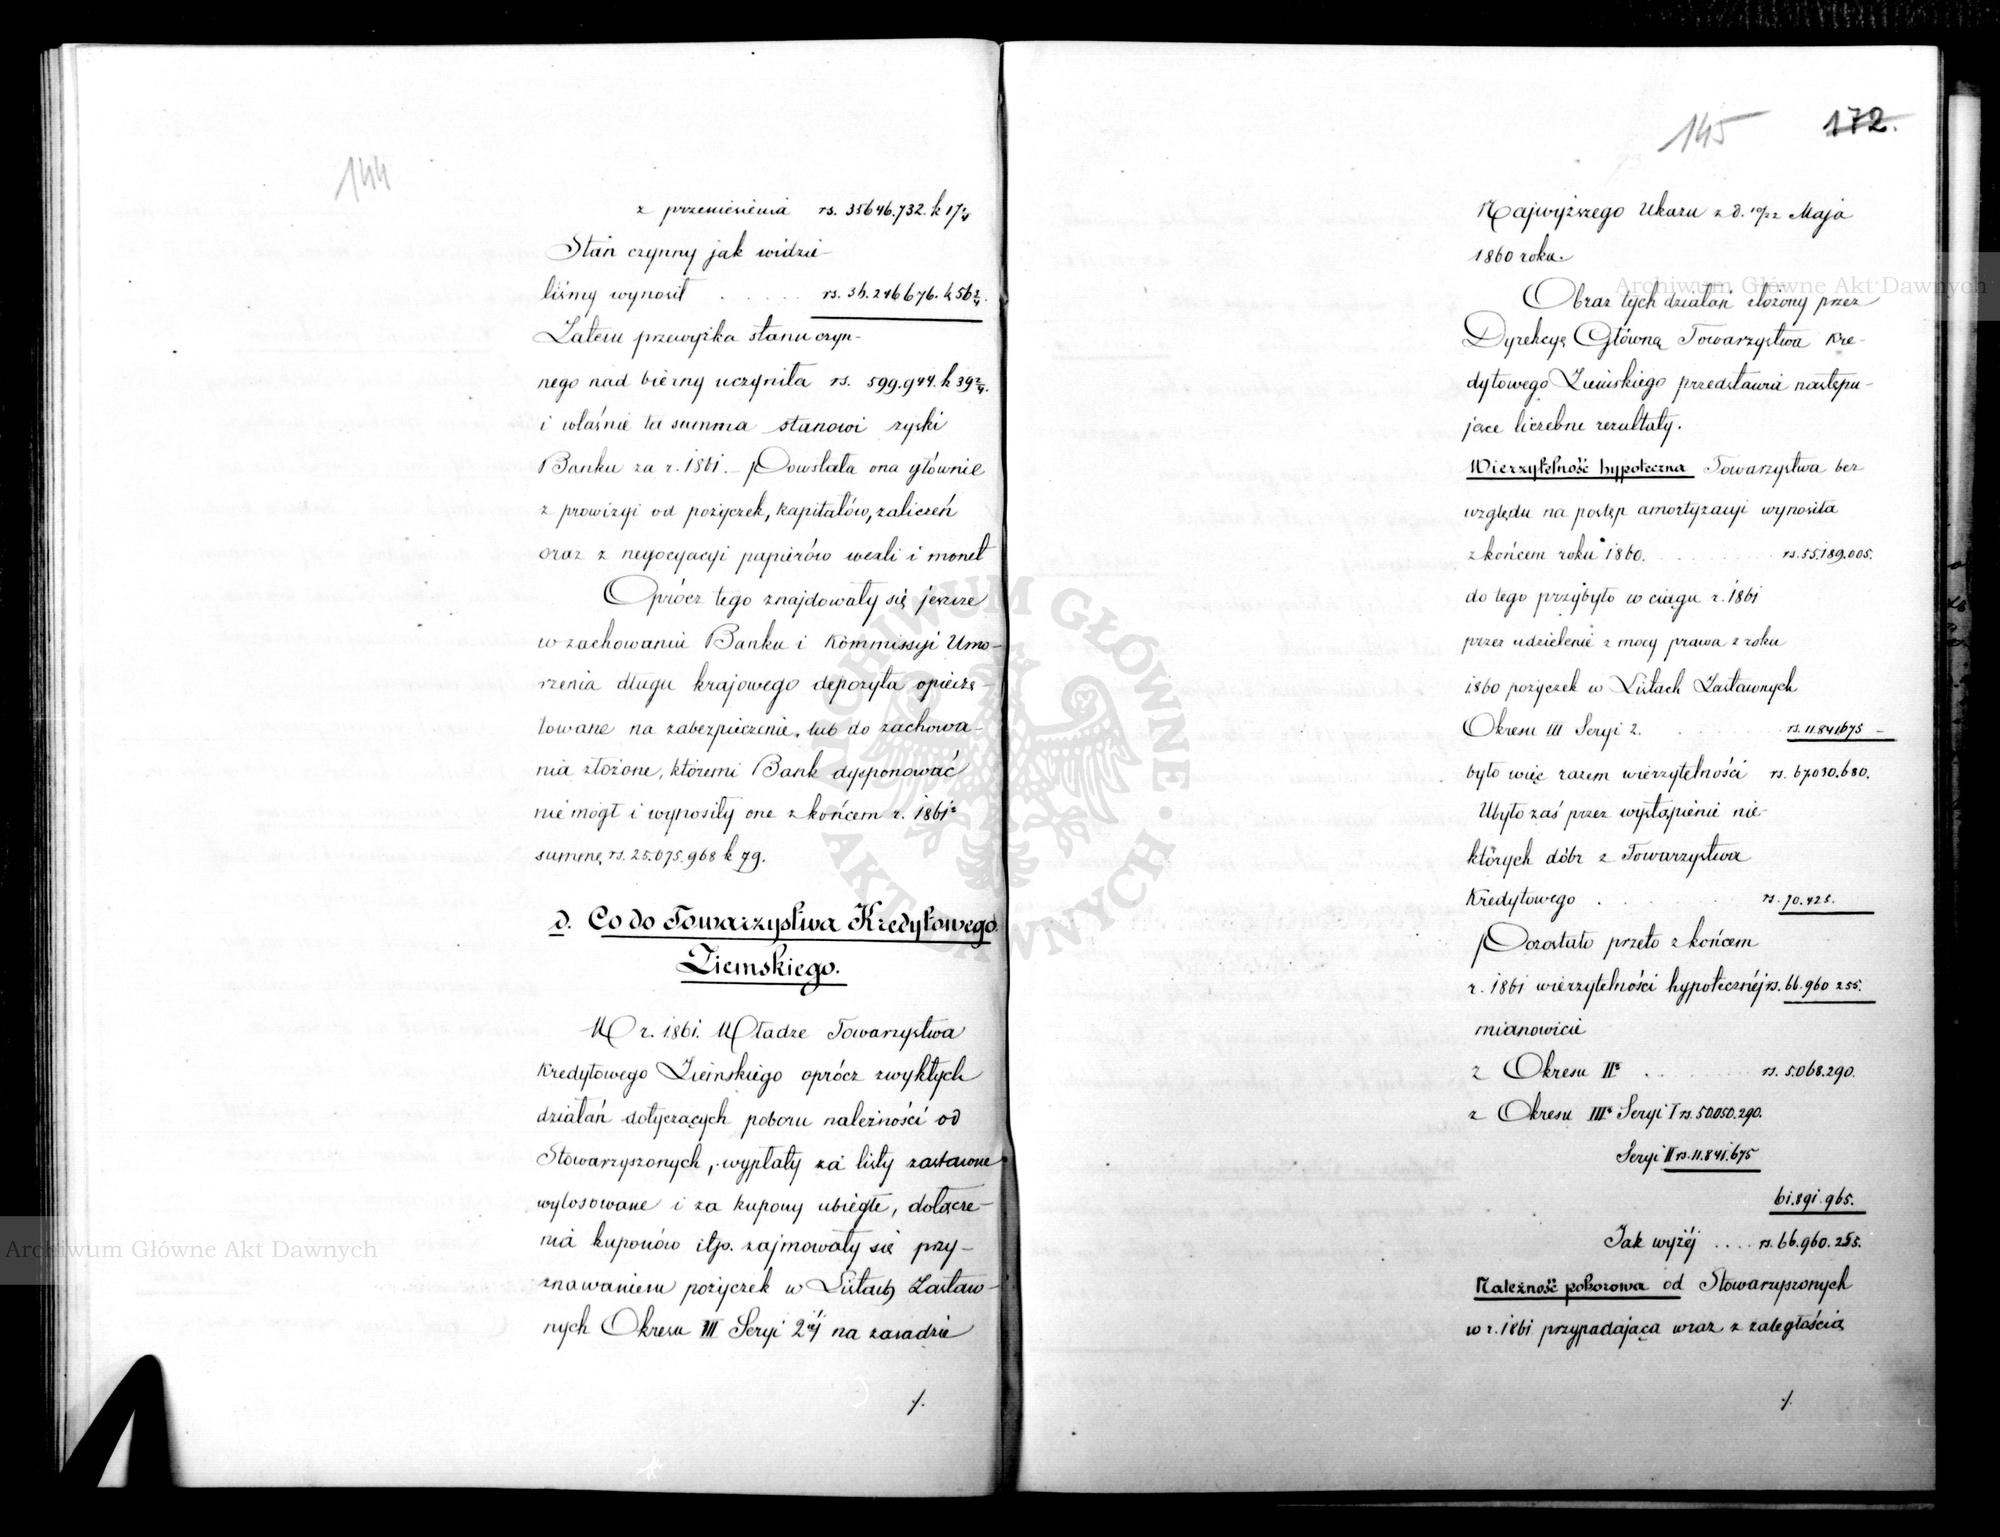 144
z przeniesienia rs. 35646.732. k 17 1/4
Stan czynny jak widzie-
liśmy wynosił . . . . . rs. 36.246676. k 56 3/4.
Zatem przewyżka stanu czyn-
nego nad bierny uczyniła rs. 599.944. k 39 2/4.
i właśnie ta summa stanowi zyski
Banku za r. 1861. – Powstała ona głównie
z prowizyi od pożyczek, kapitałów, zaliczeń
oraz z negocyacyi papierów wexli i monet
Oprócz tego znajdowały się jeszcze
w zachowaniu Banku i Kommissyi Umo-
rzenia długu krajowego depozyta opieczę-
towane na zabezpieczenie, lub do zachowa-
nia złożone, któremi Bank dysponować
nie mógł i wynosiły one z końcem r. 1861
summę rs. 25.075.968 k 79.
d. Co do Towarzystwa Kredytowego
Ziemskiego.
W r. 1861. Władze Towarzystwa
Kredytowego Ziemskiego oprócz zwykłych
działań dotyczących poboru należności od
Stowarzyszonych, wypłaty za listy zastawne
wylosowane i za kupony ubiegłe, dołącze-
nia kuponów itp. zajmowały się przy-
znawaniem pożyczek w Listach Zastaw-
nych Okresu III Seryi 2ej na zasadzie
./.
145 172.
Najwyższego Ukazu z d. 10/22 Maja
1860 roku.
Obraz tych działań złożony przez
Dyrekcyę Główną Towarzystwa Kre-
dytowego Ziemskiego przedstawia następu-
jące liczebne rezultaty.
Wierzytelność hypoteczna Towarzystwa bez
względu na postęp amortyzacyi wynosiła
z końcem roku 1860. . . . . . . rs. 55.189.005.
do tego przybyło w ciągu r. 1861
przez udzielenie z mocy prawa z roku
1860 pożyczek w Listach Zastawnych
Okresu III Seryi 2. . . . . . rs. 11.841675 –
było więc razem wierzytelności rs. 67.030.680.
Ubyło zaś przez wystąpienie nie-
których dóbr z Towarzystwa
Kredytowego . . . . . rs. 70.425.
Pozostało przeto z końcem
r. 1861 wierzytelności hypotecznéj rs. 66.960 255.
mianowicie
z Okresu IIo . . . . . rs. 5.068.290.
z Okresu IIIo Seryi I rs. 50.050.290.
Seryi II rs. 11.841.675
61.891.965.
Jak wyżéj . . . . rs. 66.960.255.
Należność poborowa od Stowarzyszonych
w r. 1861 przypadająca wraz z zaległością
./.
Archiwum Główne Akt Dawnych
Archiwum Główne Akt Dawnych
ARCHIWUM GŁÓWNE · AKT DAWNYCH ·